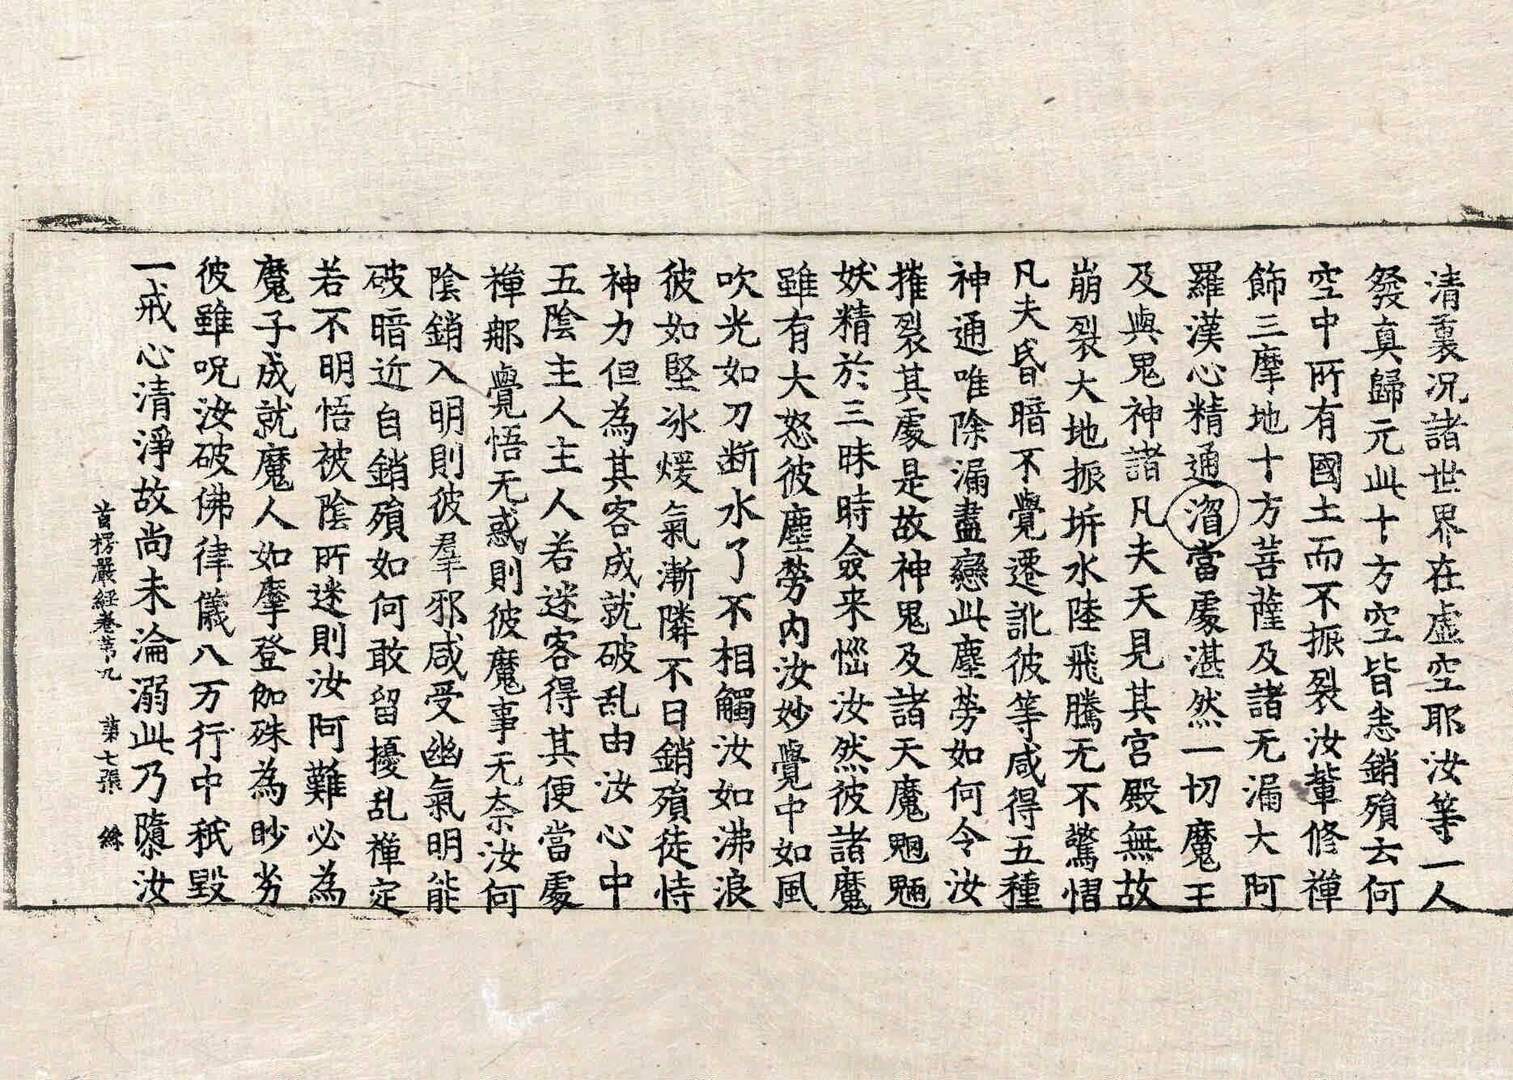 清裏況諸世界在虛空耶汝等一人
發真歸元此十方空皆悉銷殞云何
空中所有國土而不振裂汝輩修禪
飾三摩地十方菩薩及諸无漏大阿
羅漢心精通㳷當處湛然一切魔王
及與鬼神諸凡夫天見其宮殿無故
崩裂大地振坼水陸飛騰无不驚慴
凡夫昏暗不覺遷訛彼等咸得五種
神通唯除漏盡戀此塵勞如何令汝
摧裂其處是故神鬼及諸天魔魍魎
妖精於三昧時僉来惱汝然彼諸魔
雖有大怒彼塵勞內汝妙覺中如風
吹光如刀断水了不相觸汝如沸浪
彼如堅氷煖氣漸隣不日銷殞徒恃
神力但為其客成就破乱由汝心中
五陰主人主人若迷客得其便當處
禪那覺悟无惑則彼魔事无奈汝何
陰銷入明則彼羣邪咸受幽氣明能
破暗近自銷殞如何敢留擾乱禪定
若不明悟被陰所迷則汝阿難必為
魔子成就魔人如摩登伽殊為眇劣
彼雖呪汝破佛律儀八万行中秖毀
一戒心清淨故尚未淪溺此乃隳汝
首楞嚴經卷第九 第七張 絲